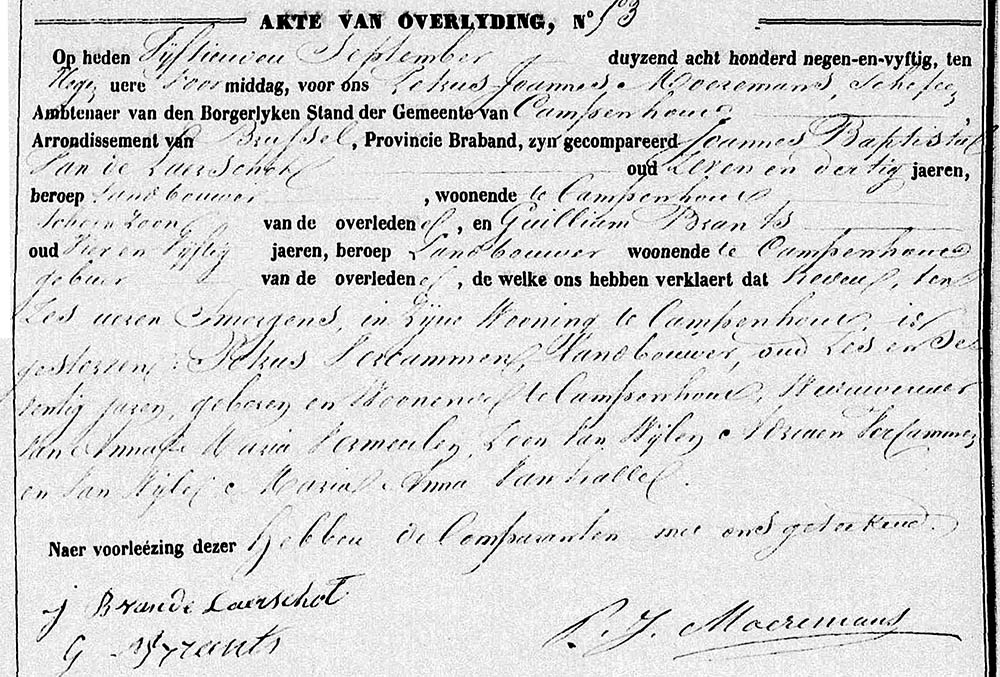 AKTE VAN OVERLYDING, N° 53
Op heden Vyftienden September duyzend acht honderd negen-en-vyftig, ten
Negen uere Voor middag, voor ons Petrus Joannes Moeremans, Schepen
Ambtenaer van den Borgerlyken Stand der Gemeente van Campenhout
Arrondissement van Brussel, Provincie Braband, zyn gecompareerd Joannes Baptista
Van de Laerschot oud Zeven en dertig jaeren,
beroep Landbouwer, woonende te Campenhout
Schoonzoon van de overledene, en Guillium Brants
oud Vier en Vyftig jaeren, beroep Landbouwer woonende te Campenhout
gebuer van de overledene, de welke ons hebben verklaert dat heden, ten
Zes ueren Smorgens, in Zyne Wooning te Campenhout, is
gestorven : Petrus Vercammen, Landbouwer, oud Zes en Se-
ventig jaren, geboren en Woonende te Campenhout, Weduwenaer
Van Anna Maria Vermeulen, Zoon Van Wylen Adriaen Vercammen
en Van Wyle Maria Anna Vanhalle.
Naer voorleézing dezer hebben de Comparanten met ons geteekend.
J B van de Laerschot
G Brants
P. J. Moeremans